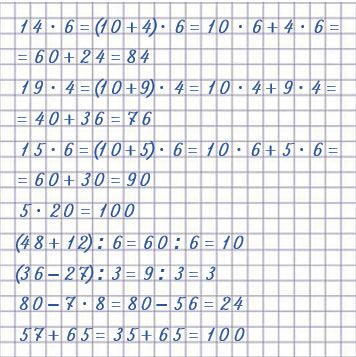 14 · 6 = (10 + 4) · 6 = 10 · 6 + 4 · 6 =
= 60 + 24 = 84
19 · 4 = (10 + 9) · 4 = 10 · 4 + 9 · 4 =
= 40 + 36 = 76
15 · 6 = (10 + 5) · 6 = 10 · 6 + 5 · 6 =
= 60 + 30 = 90
5 · 20 = 100
(48 + 12) : 6 = 60 : 6 = 10
(36 − 27) : 3 = 9 : 3 = 3
80 − 7 · 8 = 80 − 56 = 24
57 + 65 = 35 + 65 = 100